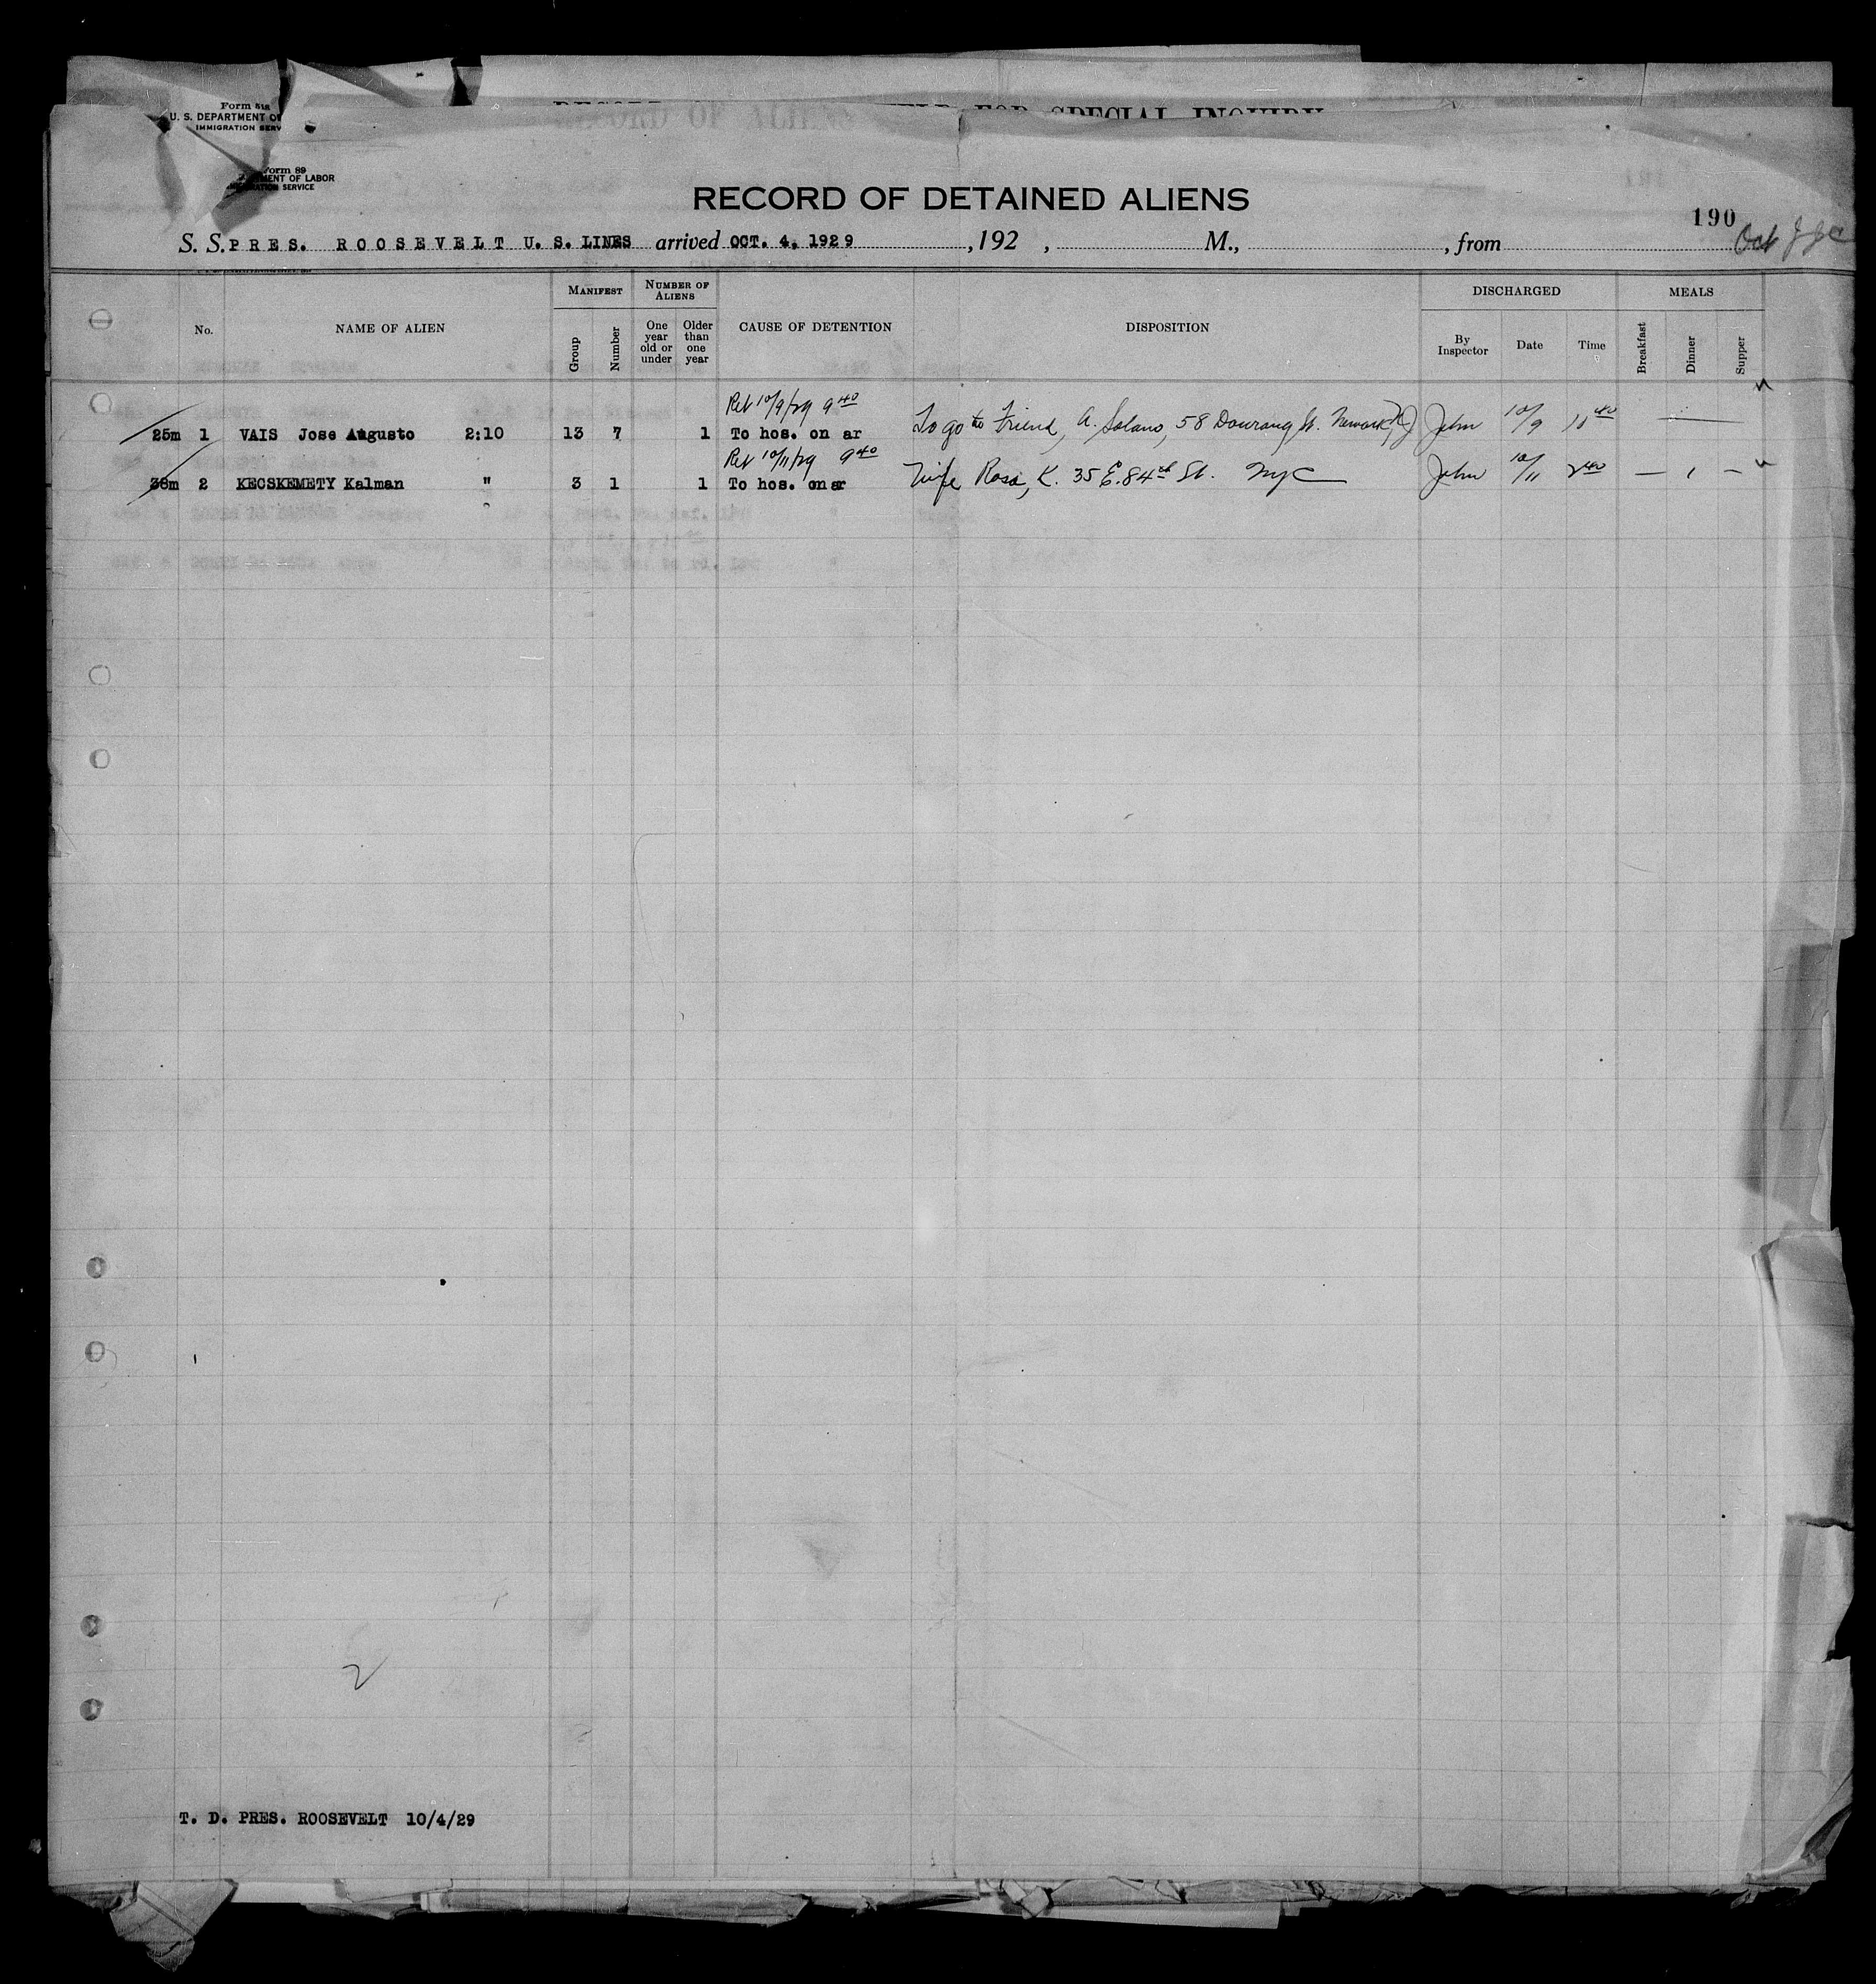 Form 518
U. S. DEPARTMENT OF
IMMIGRATION SERV
RECORD OF ALIENS HELD FOR SPECIAL INQUIRY
Form 89
MENT OF LABOR
IMMIGRATION SERVICE
RECORD OF DETAINED ALIENS
190
S. S. PRES. ROOSEVELT U. S. LINES arrived OCT. 4, 1929 , 192 , M., , from Oct
No. NAME OF ALIEN MANIFEST Group Number NUMBER OF ALIENS One year old or under Older than one year CAUSE OF DETENTION DISPOSITION DISCHARGED By Inspector Date Time MEALS Breakfast Dinner Supper
Ret 10/9/29 9 40
25m 1 VAIS Jose Augusto 2:10 13 7 1 To hos. on ar To go to Friend, A. Solano, 58 St. Newark, NJ John 10/9 11 40 —
Ret 10/11/29 9 40
38m 2 KECSKEMETY Kalman " 3 1 1 To hos. on ar Wife Rosa, K. 35 E. 84th St. NYC John 10/11 2 40 — 1 —
2
T. D. PRES. ROOSEVELT 10/4/29